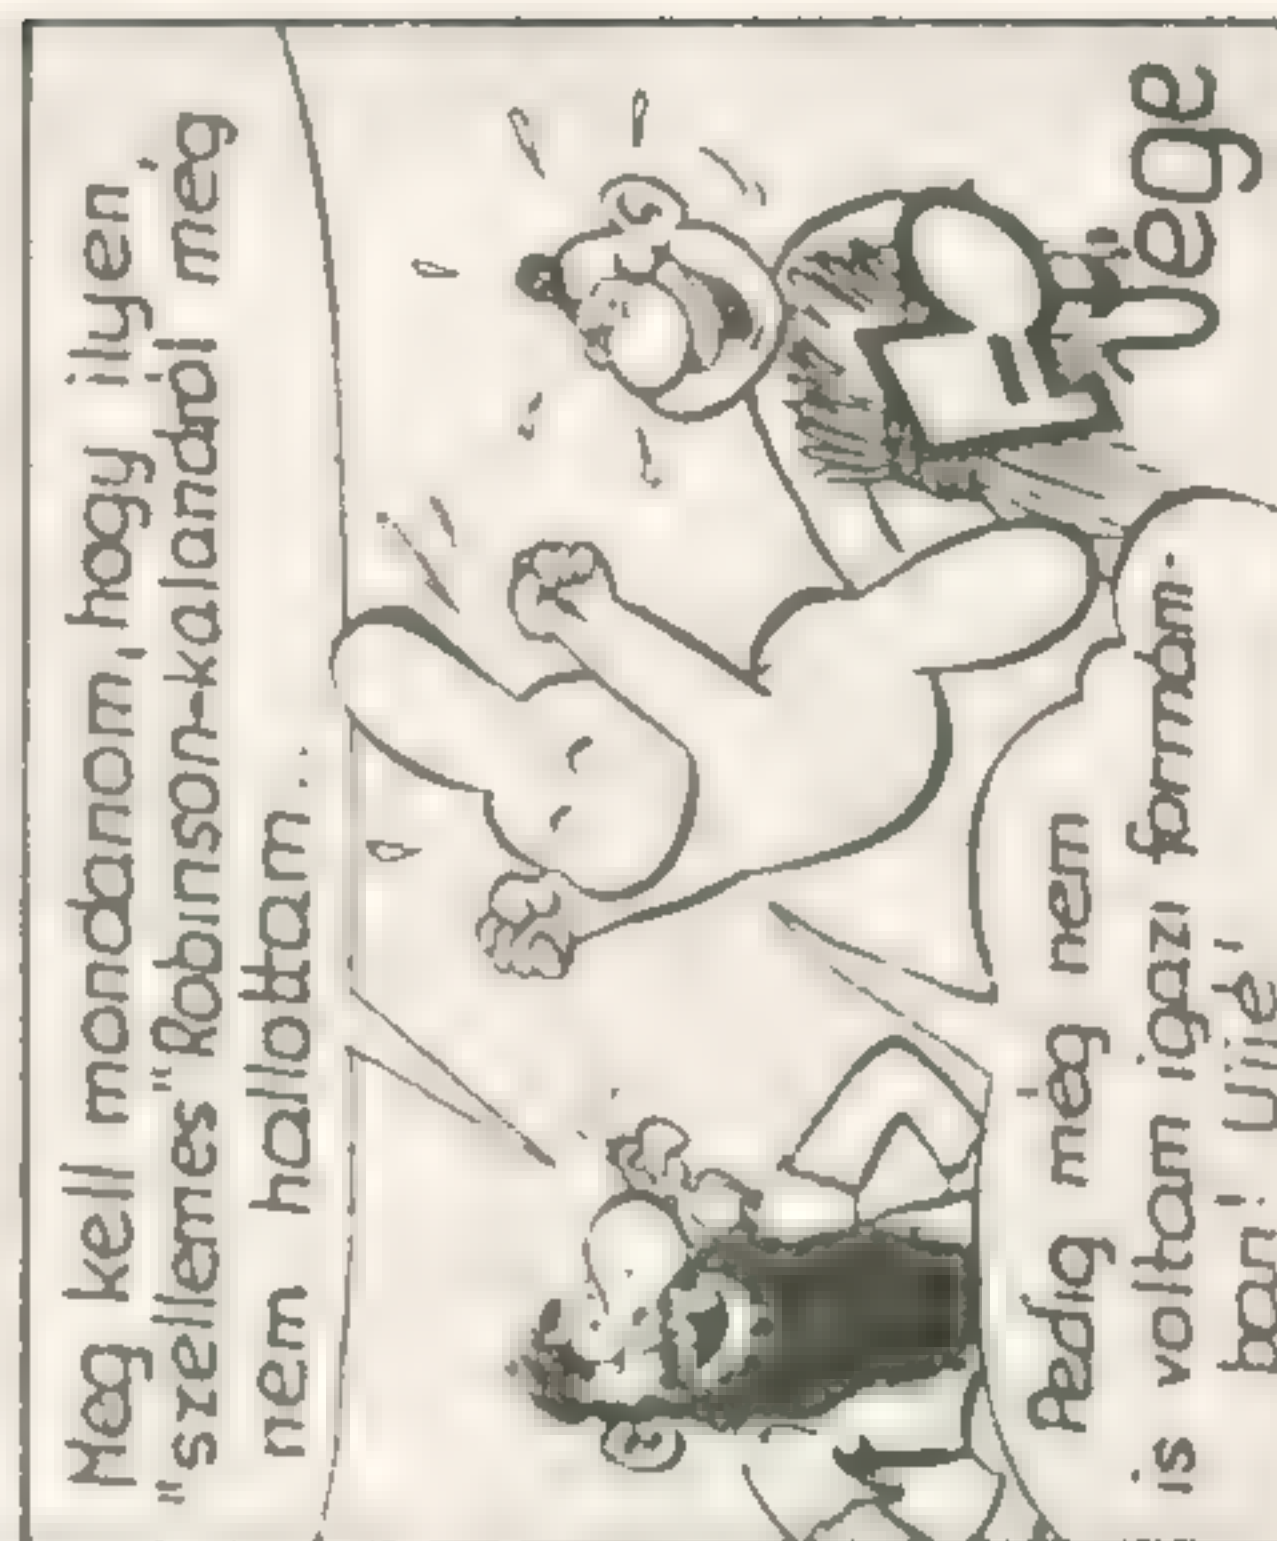 Meg kell mondanom, hogy ilyen
"szellemes" Robinson-kalandról még
nem hallottam...
Pedig még nem
is voltam igazi formám-
ban! Ujjé!
Vége